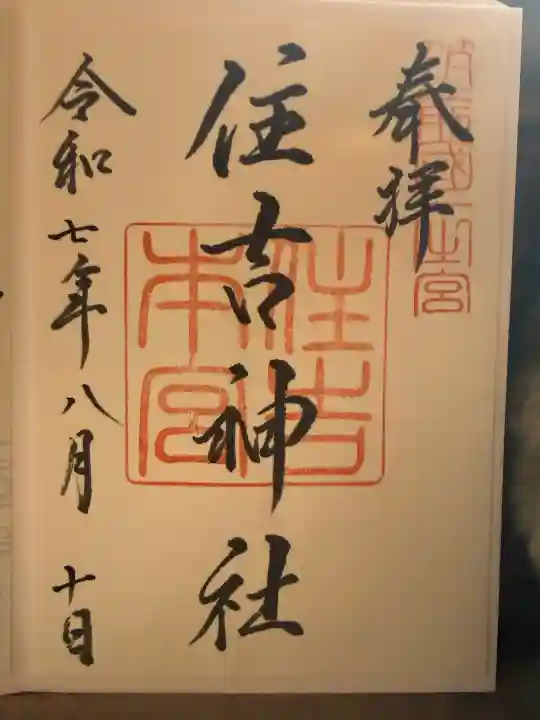 筑前國一之宮
奉拝
住吉神社
住吉本宮
令和七年八月十日